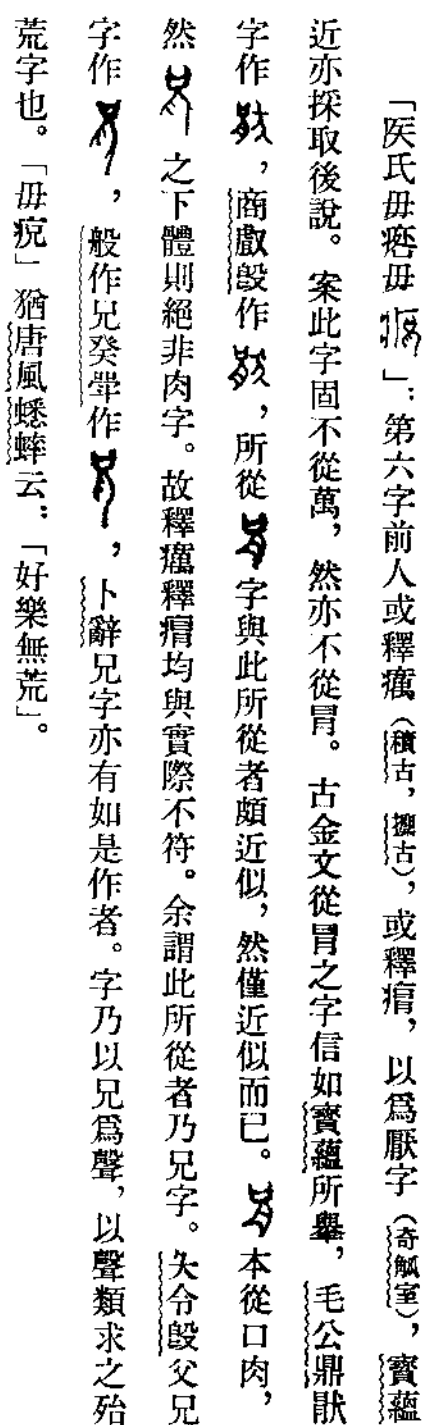 「医氏毋痞毋　」:第六字前人或釋癘(積古,攗古),或釋痟,以爲厭字(奇觚室),寶蘊
近亦採取後說。案此字固不從萬,然亦不從肙。古金文從肙之字信如寶蘊所舉,毛公鼎猒
字作　,商𠭯𣪘作　,所從　字與此所從者頗近似,然僅近似而已。　本從口肉,
然　之下體則絕非肉字。故釋癘釋痟均與實際不符。余謂此所從者乃兄字。夨令𣪘父兄
字作　,般作兄癸斝作　,卜辭兄字亦有如是作者。字乃以兄爲聲,以聲類求之殆
荒字也。「毋㾮」猶唐風蟋蟀云:「好樂無荒」。